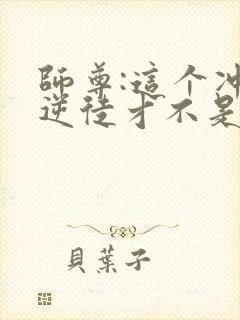 師尊:這个冲
逆徒才不是
貝葉子